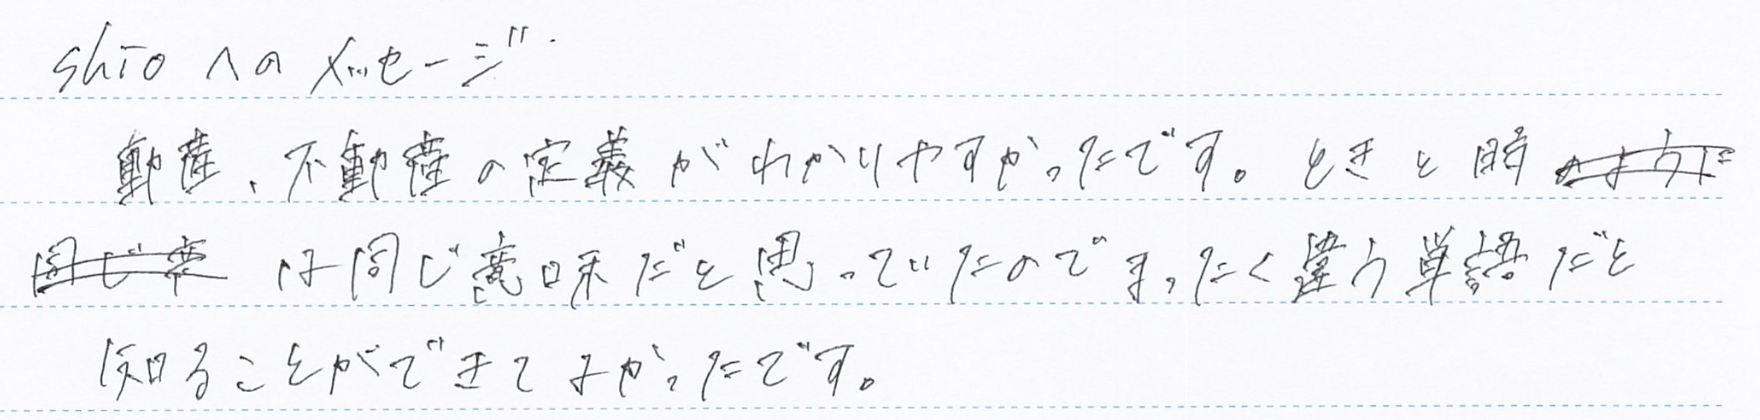 shioへのメッセージ
動産、不動産の定義がわかりやすかったです。ときと時のように
同じ意は同じ意味だと思っていたのでまったく違う単語だと
知ることができてよかったです。